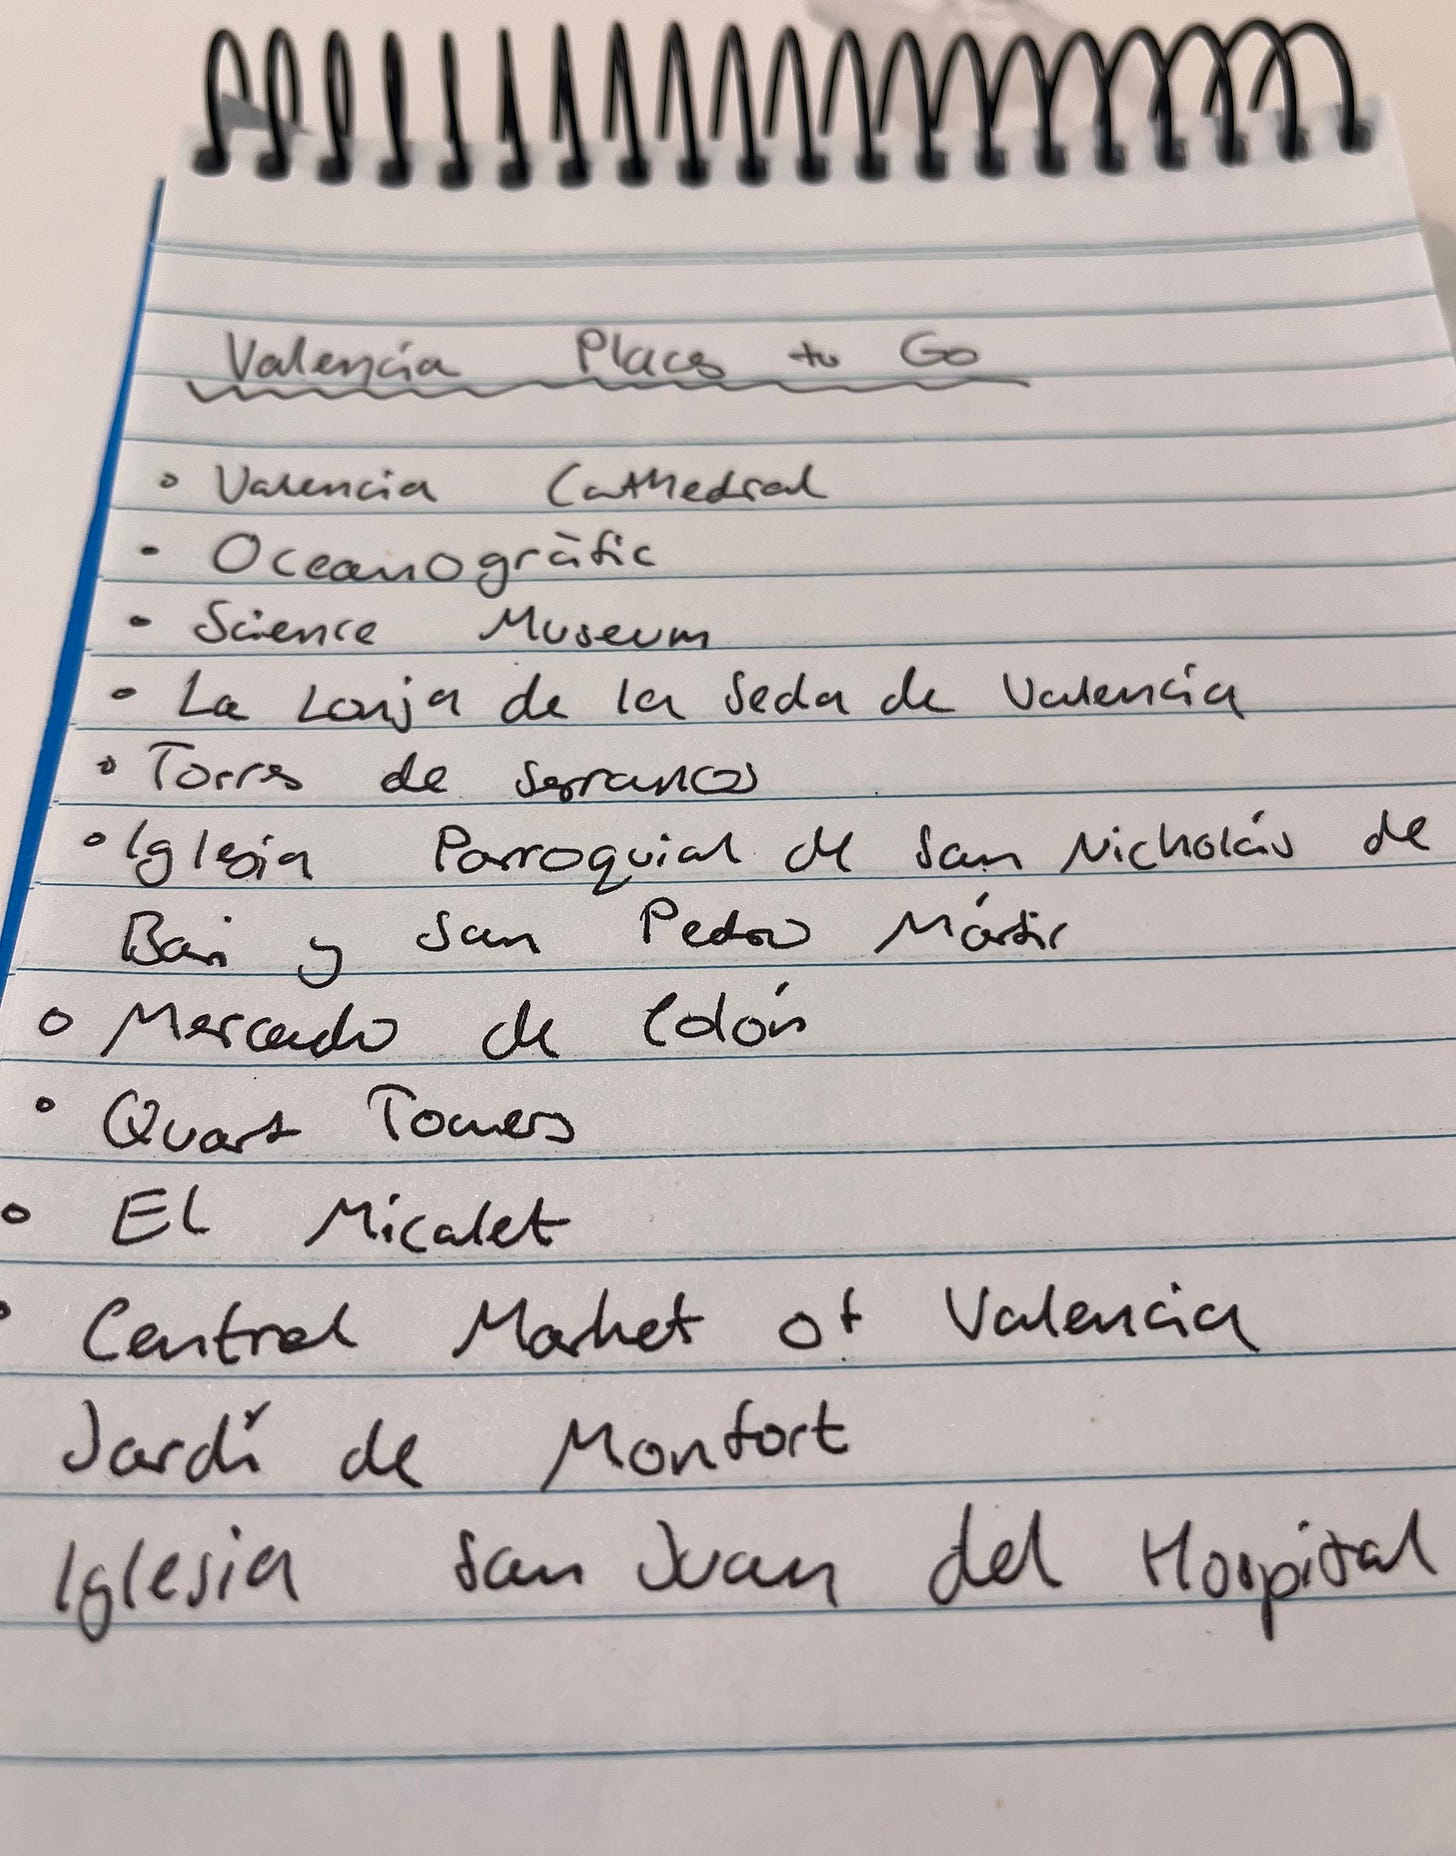 Valencia Places to Go
• Valencia Cathedral
• Oceanogràfic
• Science Museum
• La Lonja de la Seda de Valencia
• Torres de Serranos
• Iglesia Parroquial de San Nicholás de
Bari y San Pedro Mártir
• Mercado de Colón
• Quart Towers
• El Micalet
• Central Market of Valencia
Jardí de Monfort
Iglesia San Juan del Hospital